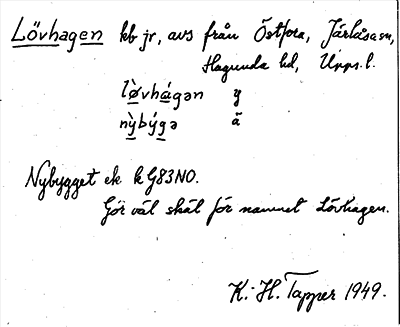 Lövhagen kb jr, avs från Östfora, Järlåsa sn,
Hagunda hd, Upps. l.
lòvhágan y
nỳbýgə ä
Nybygget ek k G83NO.
Gör väl skäl för namnet Lövhagen.
K.-H. Tapper 1949.